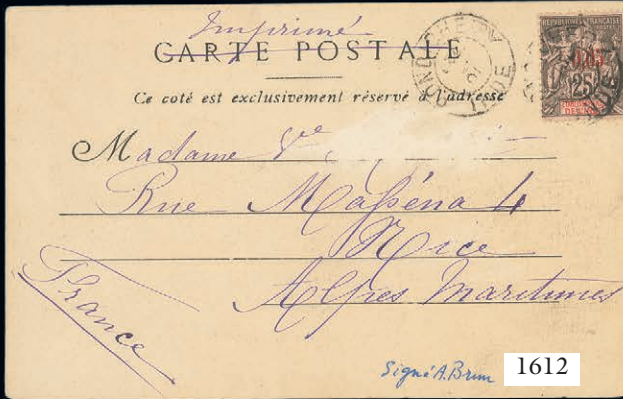 Imprimé
CARTE POSTALE
Ce coté est exclusivement réservé à l'adresse
PONDICHERY
INDE
REPUBLIQUE FRANÇAISE
0,05
25
Madame Vve
Rue Masséna 4
Nice
Alpes Maritimes
France
Signé A. Brun
1612